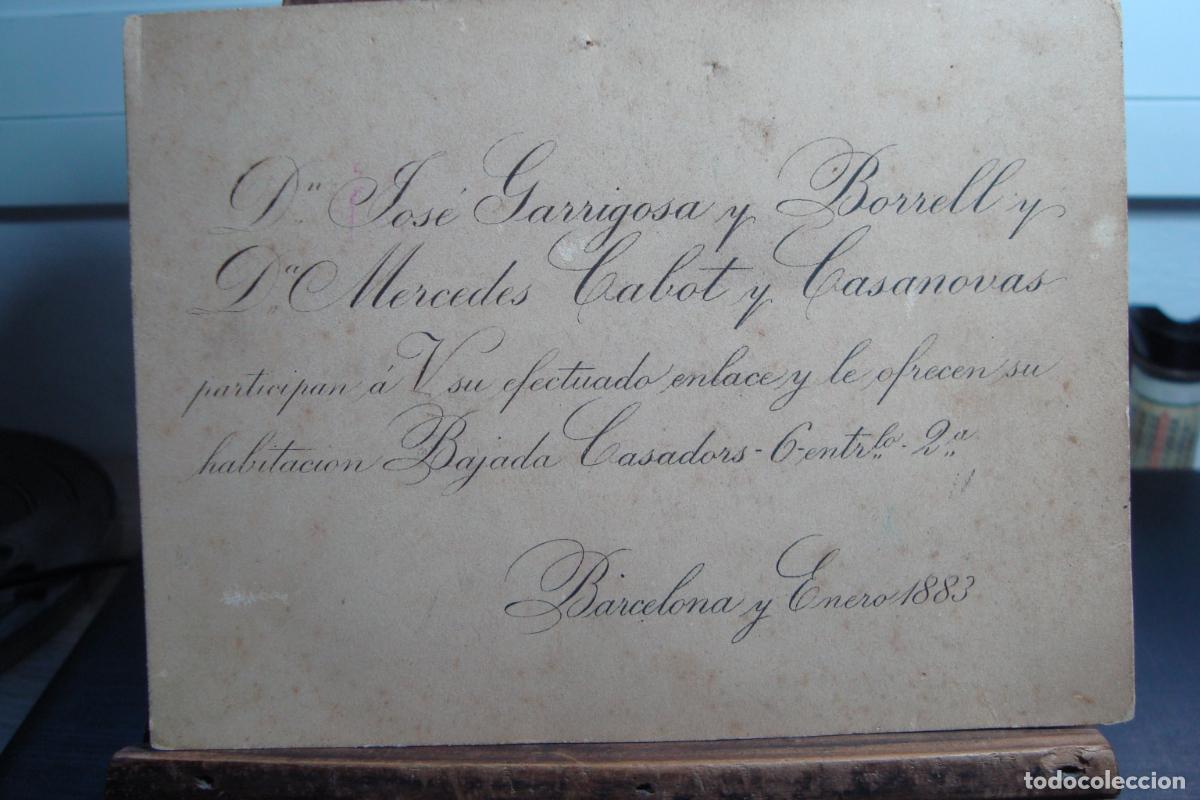 Dn. José Garrigosa y Borrell y
Da. Mercedes Cabot y Casanovas
participan á V su efectuado enlace y le ofrecen su
habitacion Bajada Casadors - 6 - entrlo. - 2a.
Barcelona y Enero 1883
todocoleccion